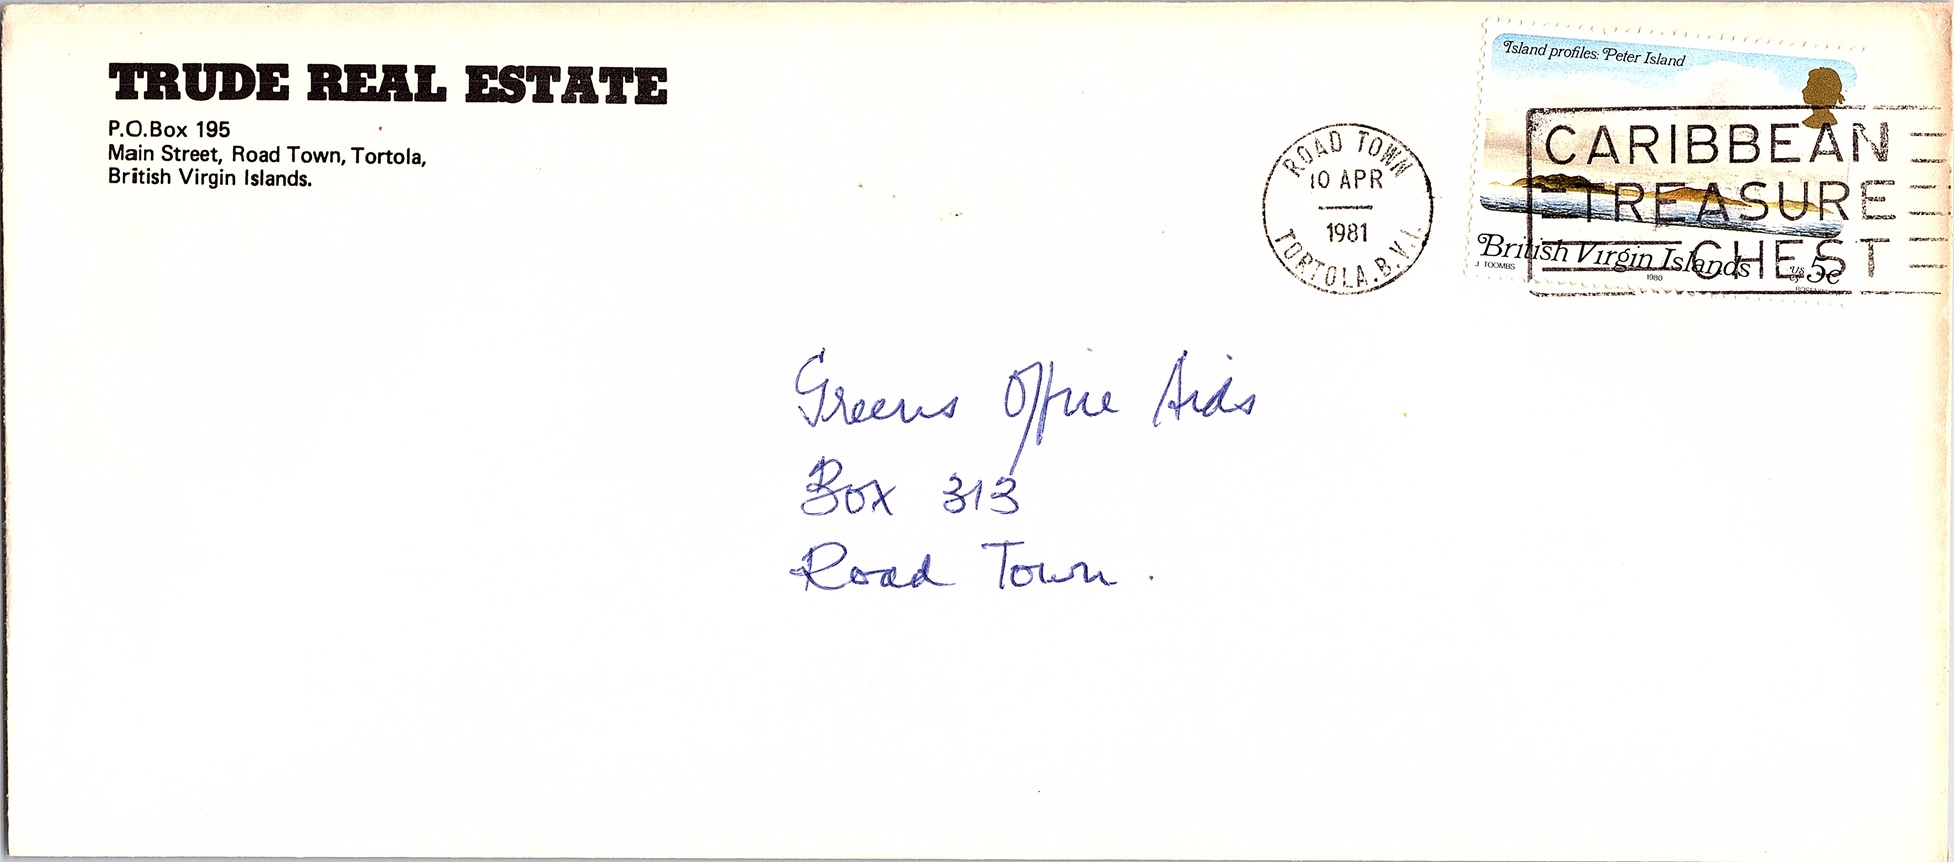 TRUDE REAL ESTATE
P.O.Box 195
Main Street, Road Town, Tortola,
British Virgin Islands.
Island profiles: Peter Island
ROAD TOWN
10 APR
1981
TORTOLA. B.V.I.
CARIBBEAN
TREASURE
CHEST
British Virgin Islands
US
5c
J TOOMBS
1980
Greens Office Aids
Box 313
Road Town.